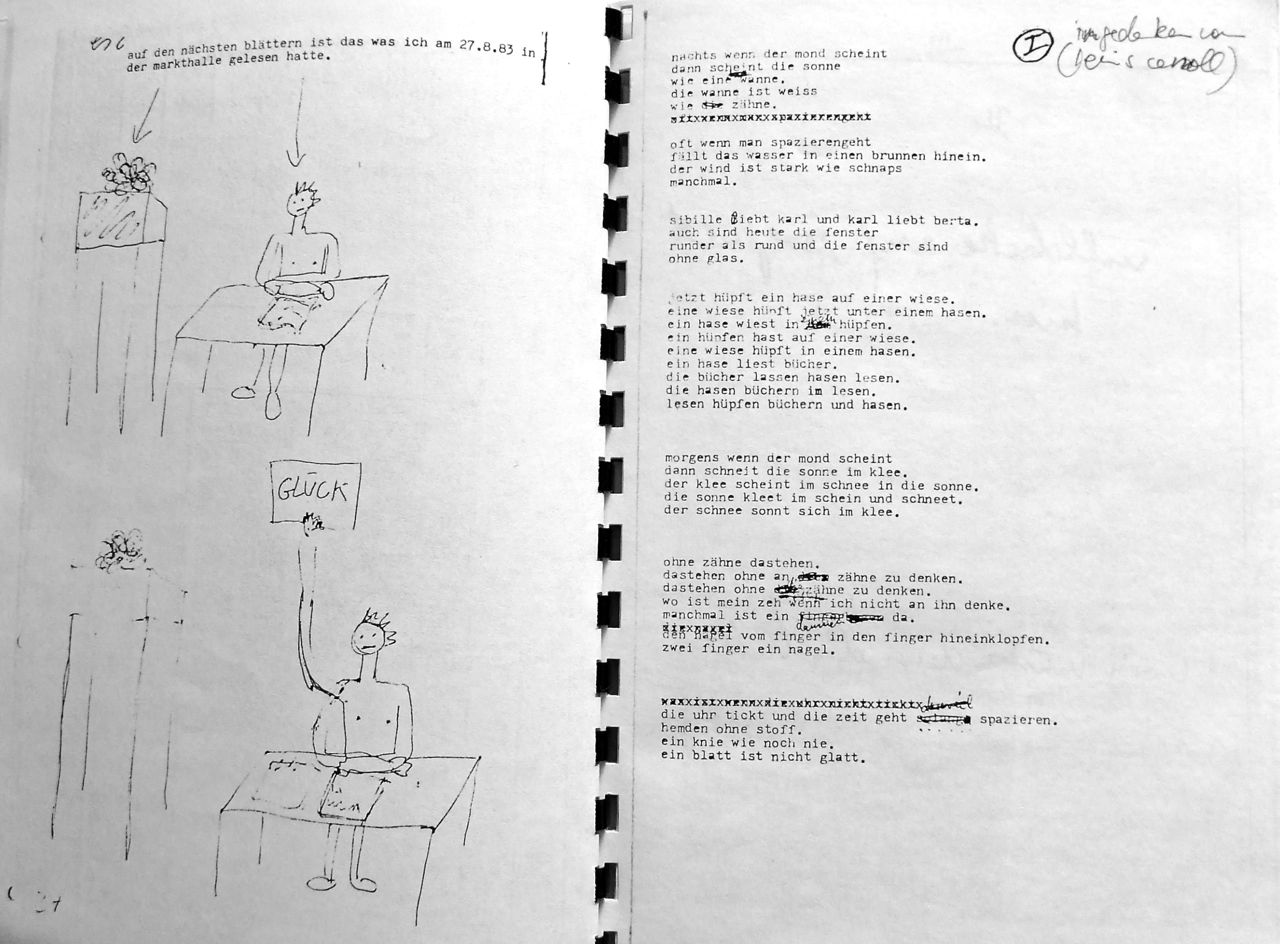 auf den nächsten blättern ist das was ich am 27.8.83 in
der markthalle gelesen hatte.
GLÜCK
I
nachts wenn der mond scheint
dann scheint die sonne
wie eine wanne.
die wanne ist weiss
wie zähne.
oft wenn man spazierengeht
fällt das wasser in einen brunnen hinein.
der wind ist stark wie schnaps
manchmal.
sibille liebt karl und karl liebt berta.
auch sind heute die fenster
runder als rund und die fenster sind
ohne glas.
jetzt hüpft ein hase auf einer wiese.
eine wiese hüpft jetzt unter einem hasen.
ein hase wiest in hüpfen.
ein hüpfen hast auf einer wiese.
eine wiese hüpft in einem hasen.
ein hase liest bücher.
die bücher lassen hasen lesen.
die hasen büchern im lesen.
lesen hüpfen büchern und hasen.
morgens wenn der mond scheint
dann schneit die sonne im klee.
der klee scheint im schnee in die sonne.
die sonne kleet im schein und schneet.
der schnee sonnt sich im klee.
ohne zähne dastehen.
dastehen ohne an zähne zu denken.
dastehen ohne zähne zu denken.
wo ist mein zeh wenn ich nicht an ihn denke.
manchmal ist ein daumen da.
den nagel vom finger in den finger hineinklopfen.
zwei finger ein nagel.
die uhr tickt und die zeit geht spazieren.
hemden ohne stoff.
ein knie wie noch nie.
ein blatt ist nicht glatt.